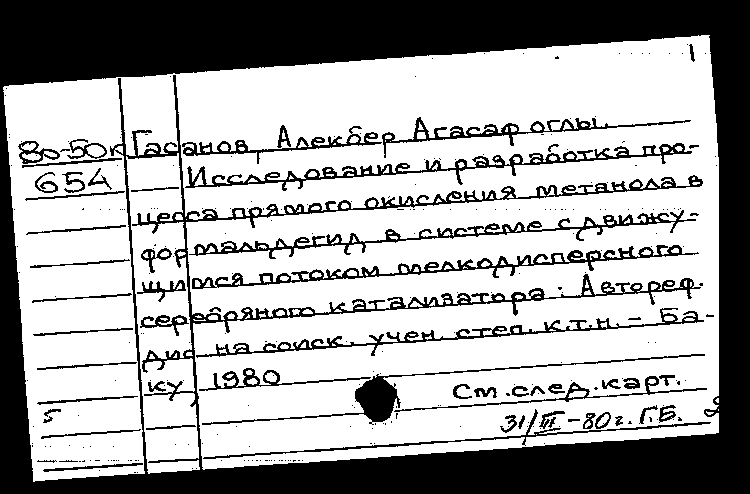 1
80-50к Гасанов, Алекбер Агасаф оглы.
654 Исследование и разработка про-
цесса прямого окисления метанола в
формальдегид в системе с движу-
щимся потоком мелкодисперсного
серебряного катализатора: Автореф.
дис на соиск. учен. степ. к.т.н. - Ба-
ку, 1980
5 См. след. карт.
31/III-80г. Г.Б.